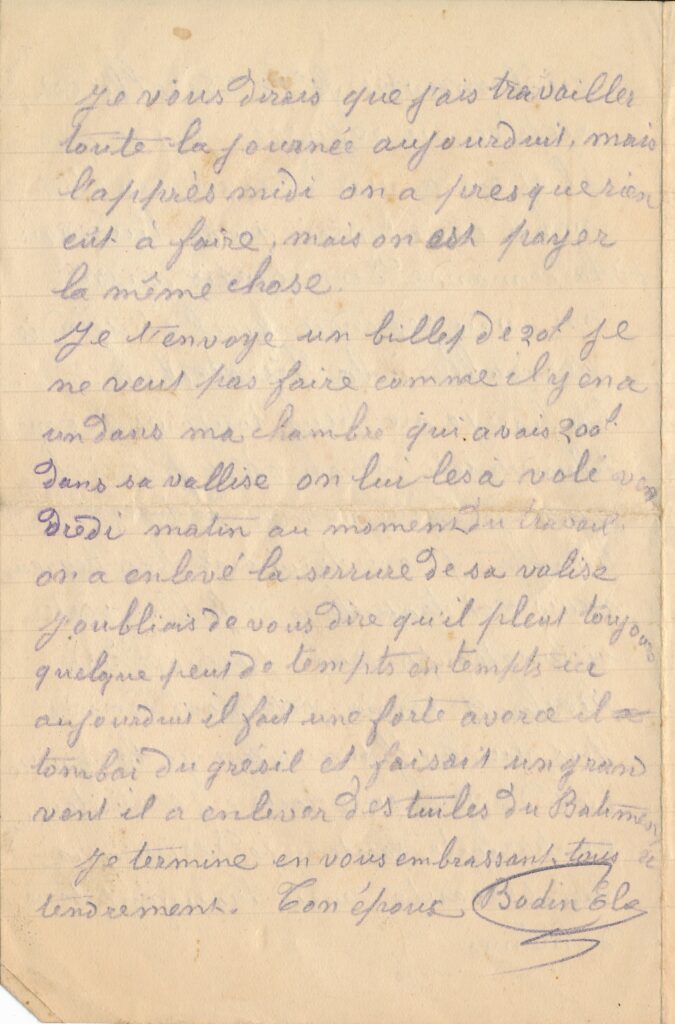 Je vous dirais que j'ais travailler
toute la journée aujourduit, mais
l'apprès midi on a presque rien
eut à faire, mais on est payer
la même chose.
Je t'envoye un billet de 20f je
ne veut pas faire comme il y en a
un dans ma chambre qui avais 200f
dans sa vallise on lui les à volé ven
dredi matin au moment du travail.
on a enlevé la serrure de sa valise
J'oubliais de vous dire qu'il pleut toujours
quelque peut de tempts en tempts ici
aujourduit il fait une forte il
tombai du grésil et faisait un grand
vent il a enlever des tuiles du Batiment
Je termine en vous embrassant tous
tendrement. Ton époux Bodin